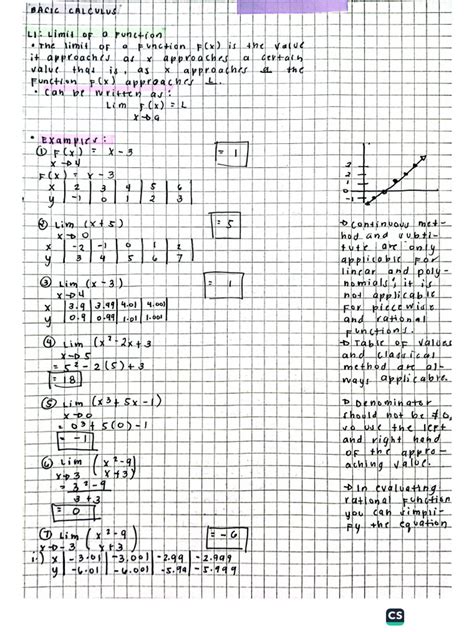 BASIC CALCULUS
L1: Limit of a Function
• The limit of a function f(x) is the value
it approaches as x approaches a certain
value that is, as x approaches a the
function f(x) approaches L.
• Can be written as:
Lim f(x) = L
x→a
• Examples:
① f(x) = x - 3
= 1
x→4
f(x) = x - 3
x 2 3 4 5 6
y -1 0 1 2 3
② Lim (x+5)
= 5
x→0
x -2 -1 0 1 2
y 3 4 5 6 7
③ Lim (x-3)
= 1
x→4
x 3.9 3.99 4.01 4.001
y 0.9 0.99 1.01 1.001
④ Lim (x²-2x+3
x→5
= 5² - 2(5) + 3
= 18
⑤ Lim (x³+5x-1)
x→0
= 0³ + 5(0) - 1
= -1
⑥ Lim (x²-9
x→3 x+3)
= 3²-9
3+3
= 0
⑦ Lim (x²-9)
= -6
x→-3 x+3
1.) x -3.01 -3.001 -2.99 -2.999
y -6.01 -6.001 -5.99 -5.999
3
2
1
0
-1
→ Continuous met-
hod and subti-
tute are only
applicable for
linear and poly-
nomials; it is
not applicable
for piecewise
and rational
functions.
→ Table of values
and classical
method are al-
ways applicable.
→ Denominator
should not be ≠0,
so use the left
and right hand
of the appro-
aching value.
→ In evaluating
rational function
you can simpli-
fy the equation
CS